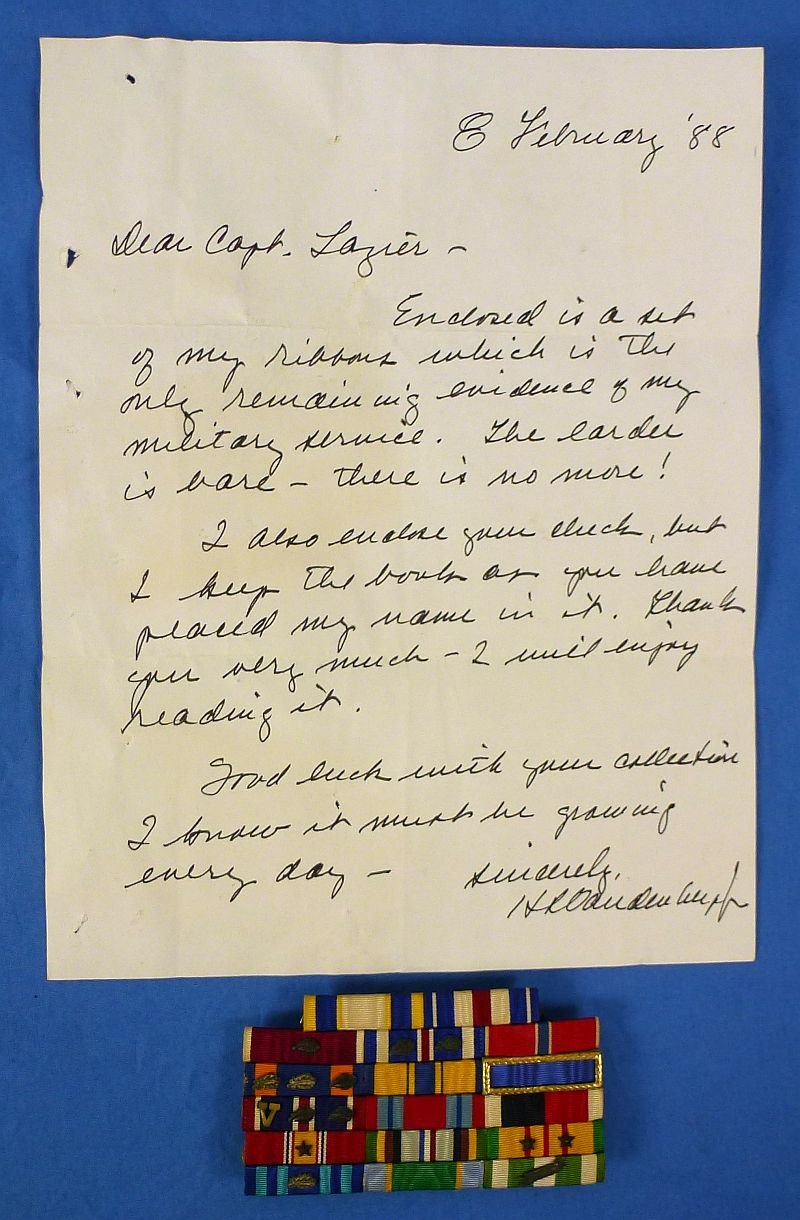 8 February '88
Dear Capt. Lazier –
Enclosed is a set
of my ribbons which is the
only remaining evidence of my
military service. The larder
is bare – there is no more!
I also enclose your check, but
I keep the book as you have
placed my name in it. Thank
you very much – I will enjoy
reading it.
Good luck with your collection
I know it must be growing
every day –
Sincerely,
HS Vandenberg Jr
V